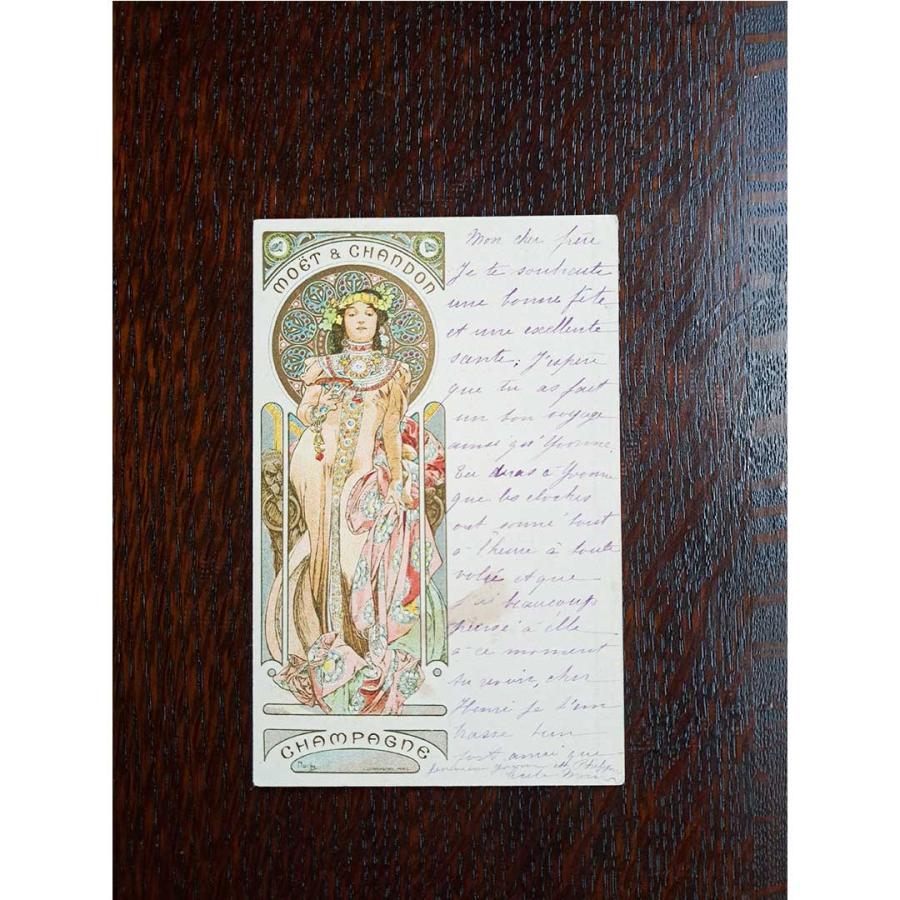 MOËT & CHANDON
CHAMPAGNE
Mucha
Mon cher frère
Je te souhaite
une bonne fête
et une excellente
santé. J'espère
que tu as fait
un bon voyage
ainsi qu'Yvonne.
Tu diras à Yvonne
que les cloches
ont sonné tout
à l'heure à toute
volée et que
j'ai beaucoup
pensé à elle
à ce moment
au revoir, cher
Henri je t'em
brasse bien
fort ainsi que